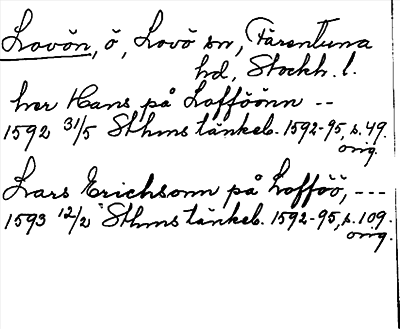 Lovön, ö, Lovö sn, Färentuna
hd, Stockh. l.
her Hans på Lofföönn --
1592 31/5 Sthms tänkeb. 1592-95, s. 49.
orig.
Lars Erichsonn på Lofföö, ---
1593 12/2 Sthms tänkeb. 1592-95, s. 109.
orig.